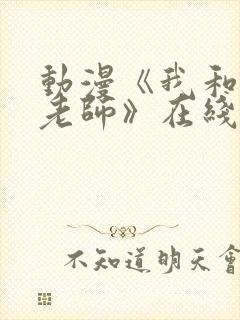 動漫《我和
老師》在綫
不知道明天會